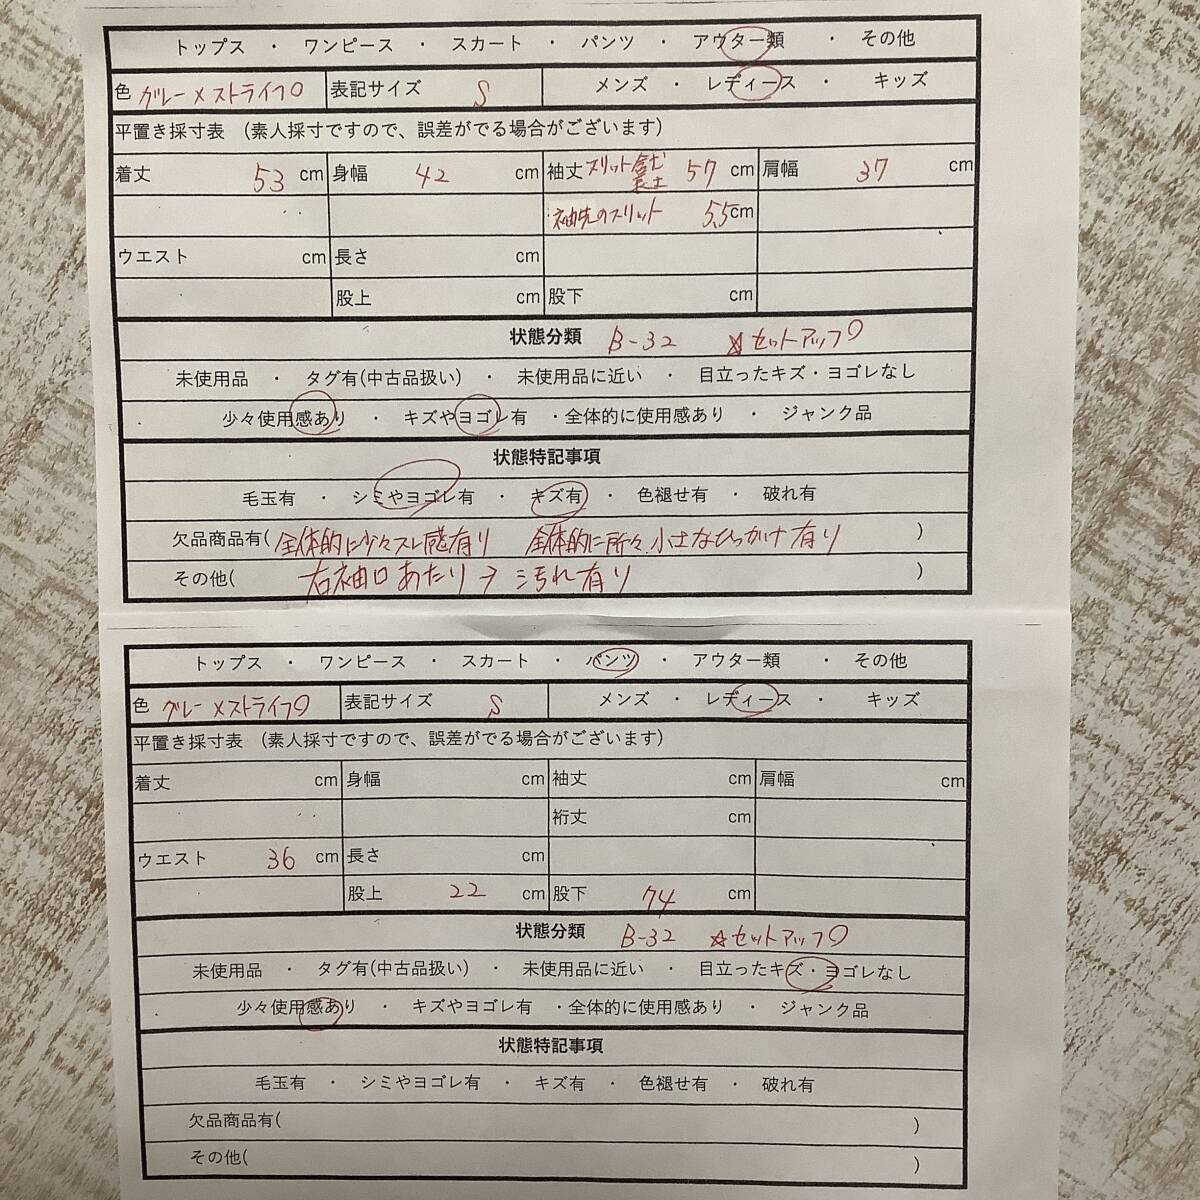 トップス ・ ワンピース ・ スカート ・ パンツ ・ アウター類 ・ その他
色 グレー×ストライプ 表記サイズ S メンズ ・ レディース ・ キッズ
平置き採寸表 (素人採寸ですので、誤差がでる場合がございます)
着丈 53 cm 身幅 42 cm 袖丈 スリット含む 57 cm 肩幅 37 cm
袖先のスリット 5.5cm
ウエスト cm 長さ cm
股上 cm 股下 cm
状態分類 B-32 ☆セットアップ
未使用品 ・ タグ有(中古品扱い) ・ 未使用品に近い ・ 目立ったキズ・ヨゴレなし
少々使用感あり ・ キズやヨゴレ有 ・全体的に使用感あり ・ ジャンク品
状態特記事項
毛玉有 ・ シミやヨゴレ有 ・ キズ有 ・ 色褪せ有 ・ 破れ有
欠品商品有( 全体的に少々スレ感有り 全体的に所々、小さなひっかけ有り )
その他( 右袖口あたり→汚れ有り )
トップス ・ ワンピース ・ スカート ・ パンツ ・ アウター類 ・ その他
色 グレー×ストライプ 表記サイズ S メンズ ・ レディース ・ キッズ
平置き採寸表 (素人採寸ですので、誤差がでる場合がございます)
着丈 cm 身幅 cm 袖丈 cm 肩幅 cm
裄丈 cm
ウエスト 36 cm 長さ cm
股上 22 cm 股下 74 cm
状態分類 B-32 ☆セットアップ
未使用品 ・ タグ有(中古品扱い) ・ 未使用品に近い ・ 目立ったキズ・ヨゴレなし
少々使用感あり ・ キズやヨゴレ有 ・全体的に使用感あり ・ ジャンク品
状態特記事項
毛玉有 ・ シミやヨゴレ有 ・ キズ有 ・ 色褪せ有 ・ 破れ有
欠品商品有( )
その他( )